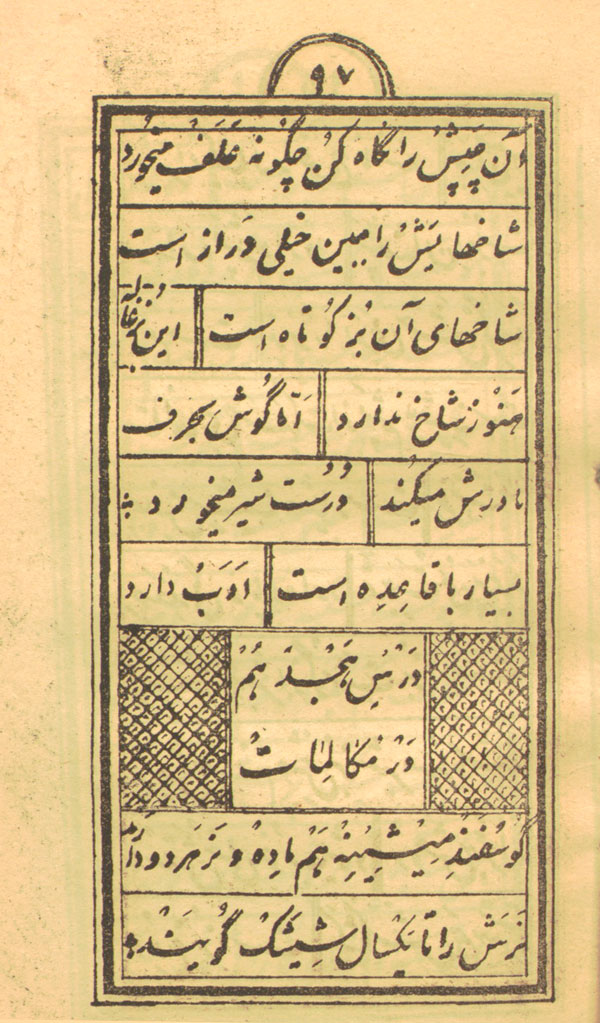 ۹۷
آن چَپِش را نگاه کن چگونه عَلَف میخورد
شاخهایَش را ببین خیلی دَراز است
شاخهای آن بُز کوتاه است این بُزغاله
هَنوْز شاخ ندارد اَمّا گُوش بحرف
مادرش میکُند دُرُست شیر میخورد
بسیار با قاعِدِه است اَدَبْ دارد
دَرْسِ هَجْدَهُمْ
دَرْ مُکالِمٰاتْ
گوسْفَنْدِ مِیْشِیْنِهْ هَمْ مادِهْ وَ نَر هردو دارد
نَرَشْ را تا یکسال شِیْشَکْ گُویَنْد